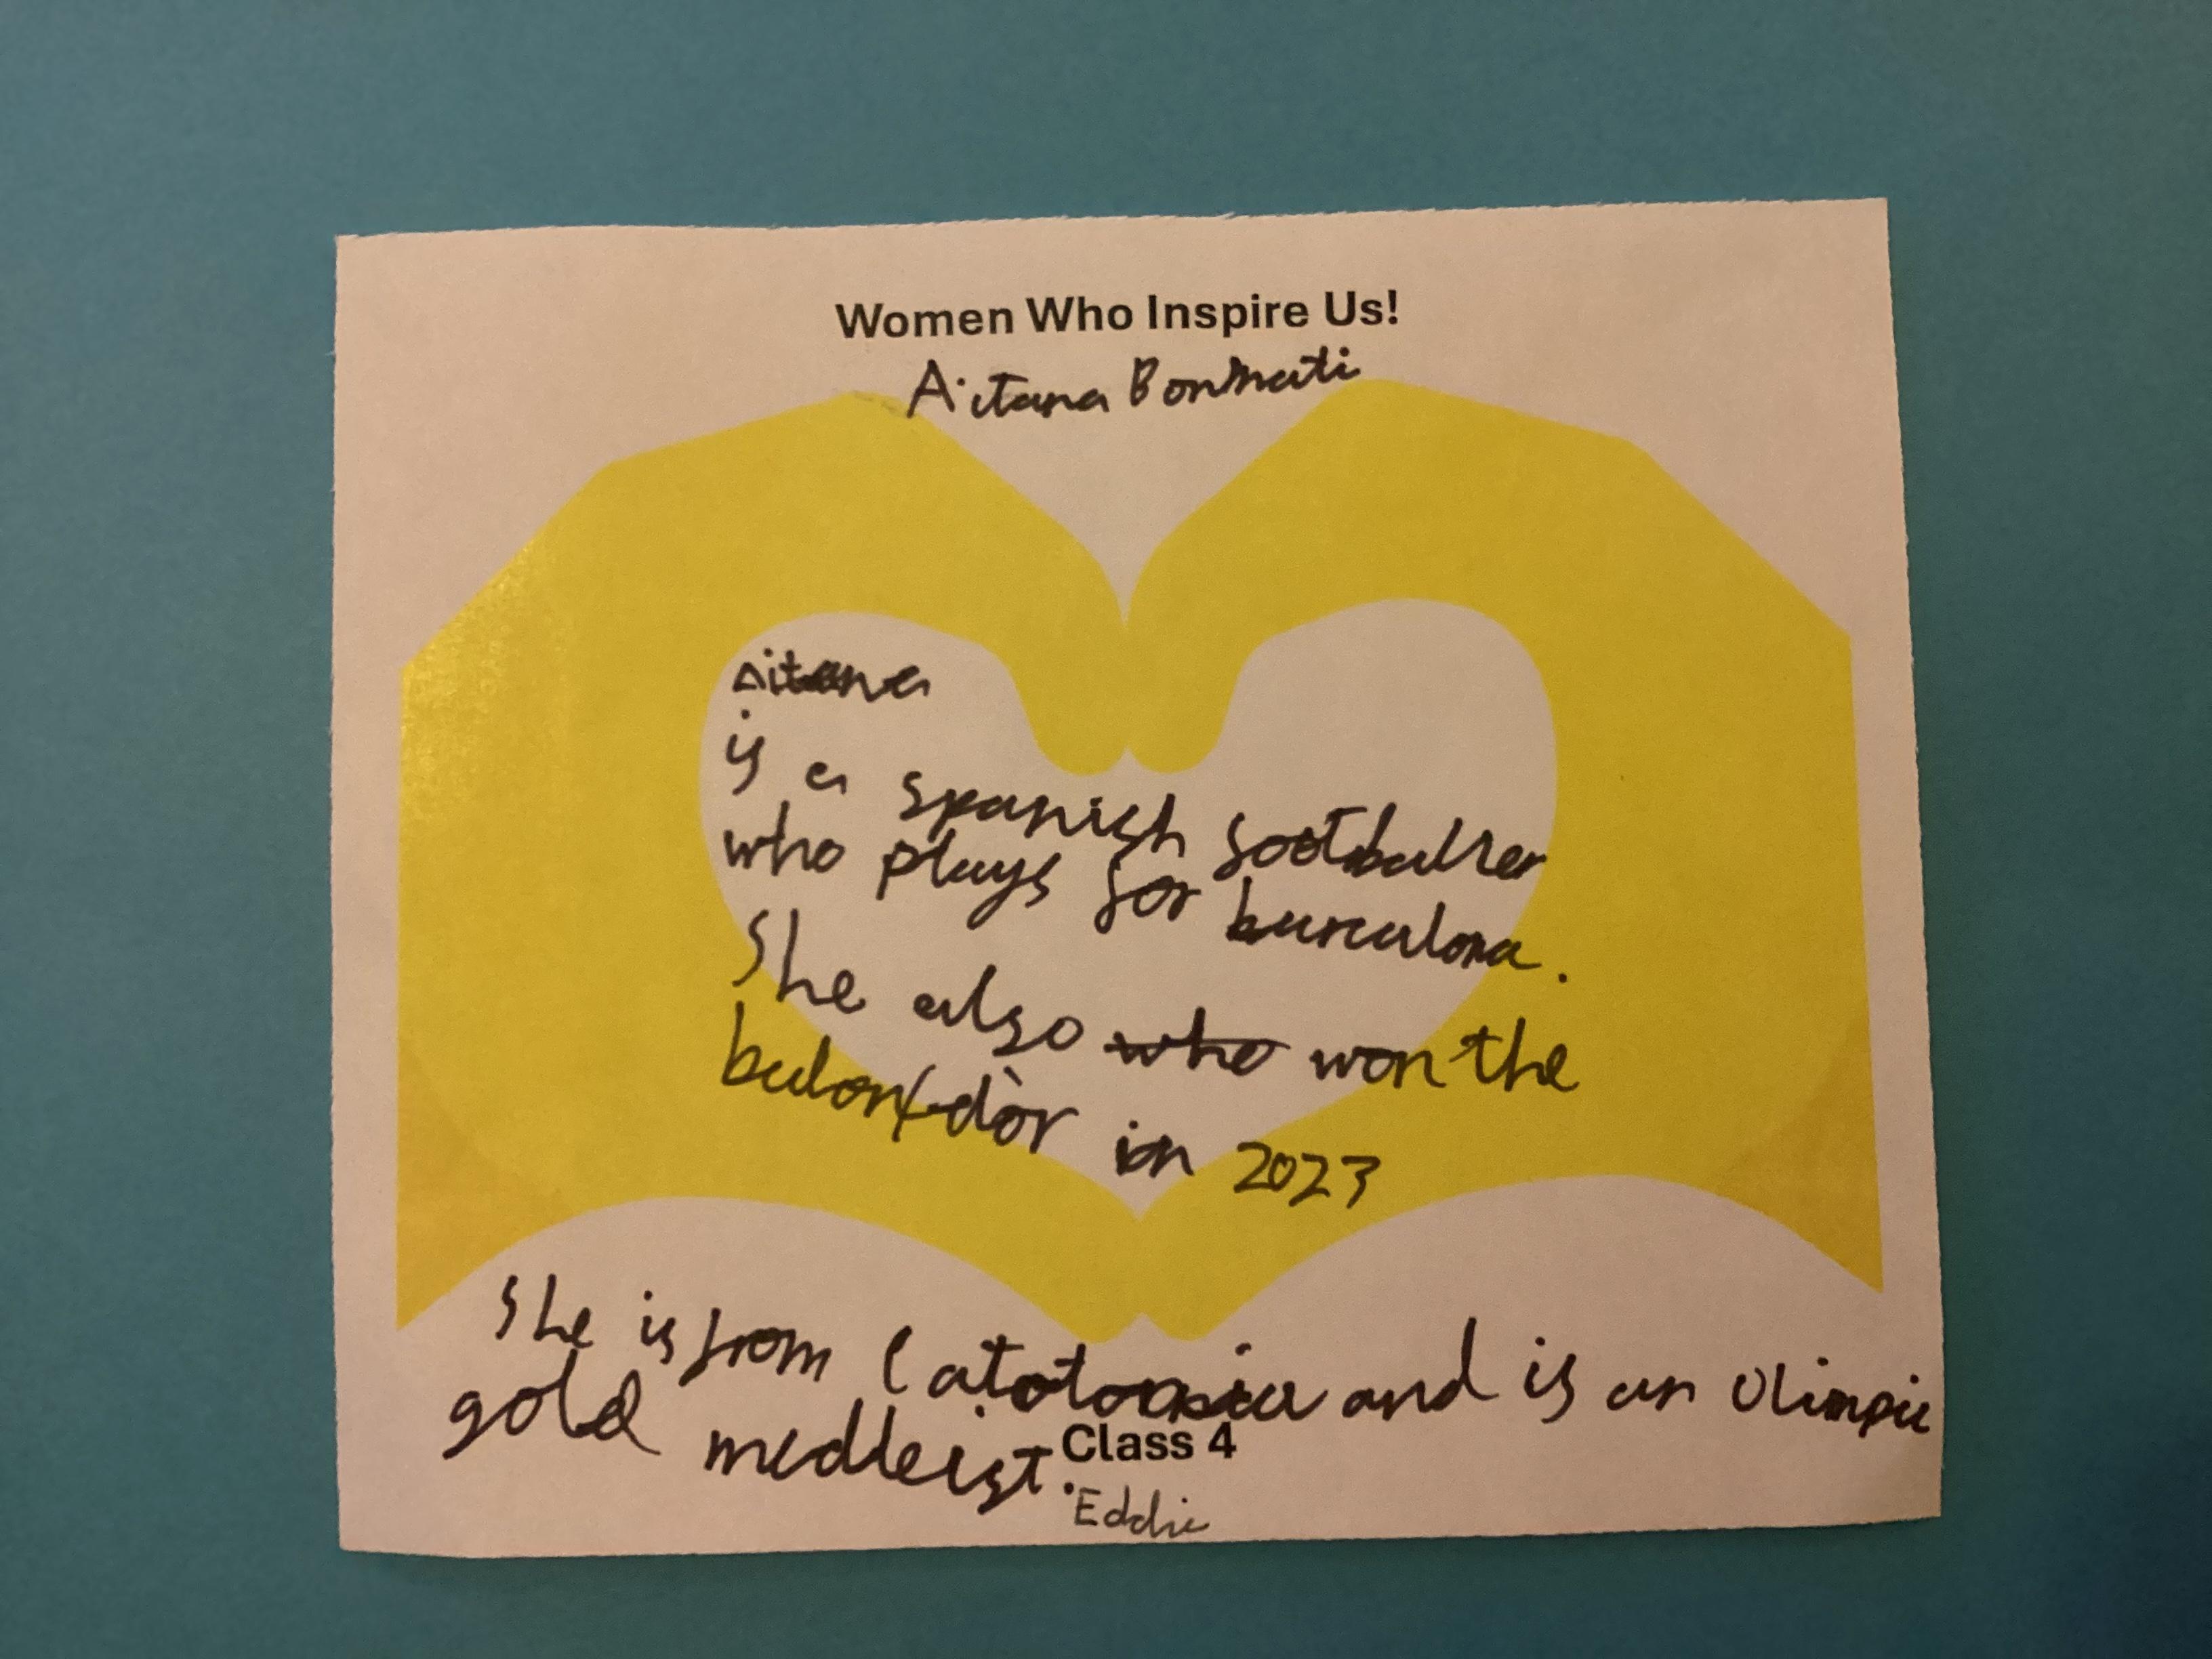 Women Who Inspire Us!
Aitana Bonmati
Aitana
is a spanish footballer
who plays for barcalona.
She also who won the
balon d'or in 2023
She is from Catolonia and is an olimpic
gold medleist.
Class 4
Eddie